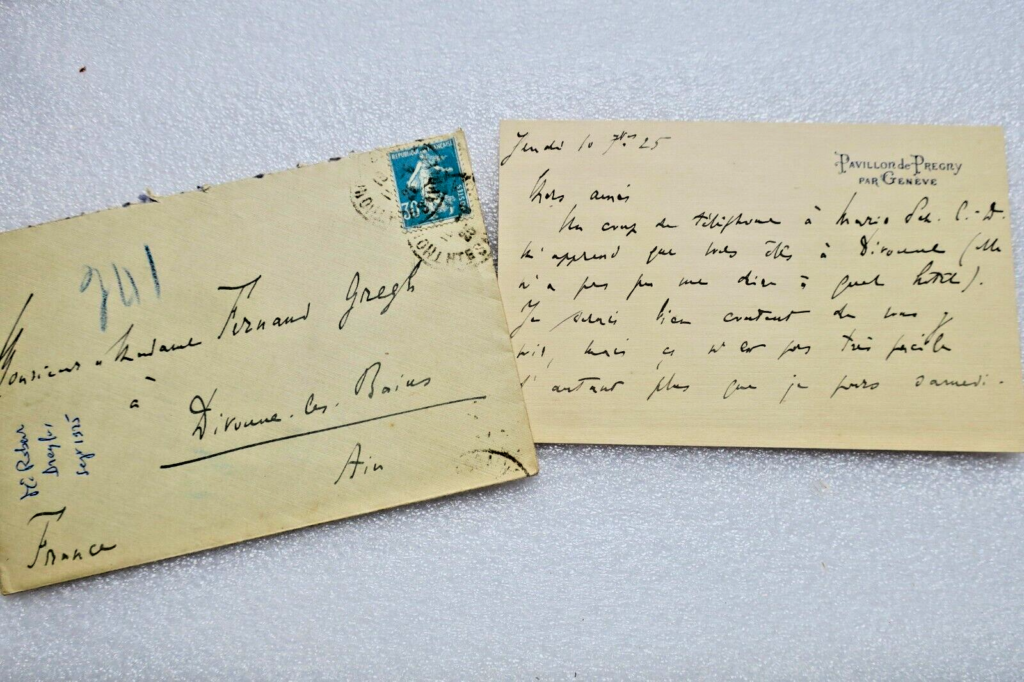 REPUBLIQUE FRANÇAISE
POSTES
341
Monsieur & Madame Fernand Gregh
à
Divonne-les-Bains
Ain
France
Dreyfus
Sept 1925
Jeudi 10 7bre 25
PAVILLON de PREGNY
PAR GENÈVE
Chers amis
Un coup de téléphone à Marie Sch. C.-D.
m'apprend que vous êtes à Divonne (elle
n'a pas pu me dire à quel hôtel).
Je serais bien content de vous y
voir, mais ça n'est pas très facile
d'autant plus que je pars samedi.